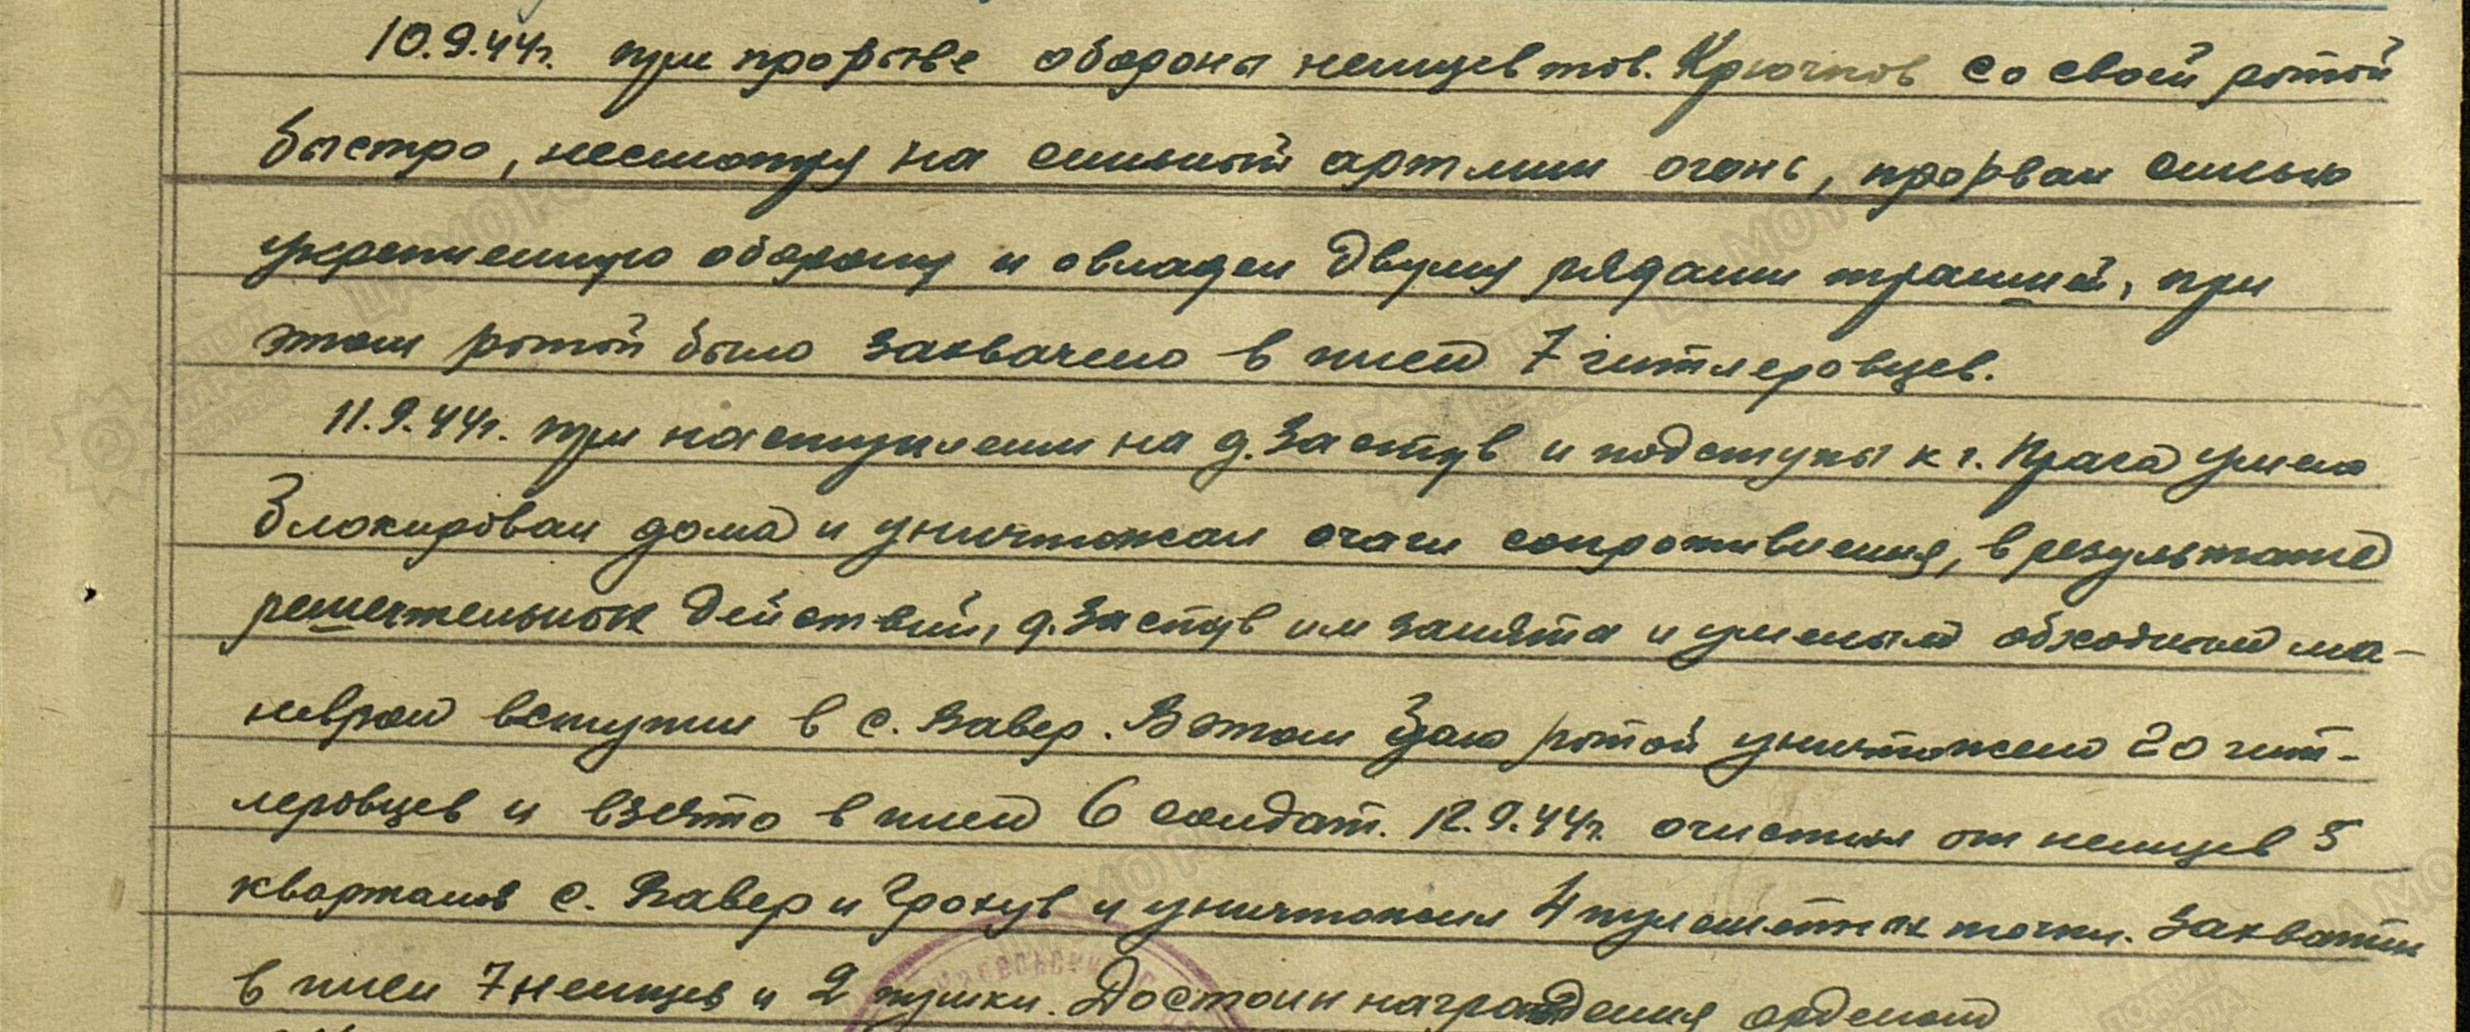 10.9.44г. при прорыве обороны немцев тов. Крючков со своей ротой
быстро, несмотря на сильный артмин огонь, прорвал сильно
укрепленную оборону и овладел двумя рядами траншей, при
этом ротой было захвачено в плен 7 гитлеровцев.
11.9.44г. при наступлении на д. Заступ и подступы к г. Прага умело
блокировал дома и уничтожал очаги сопротивления, в результате
решительных действий, д. Заступ им занята и умелым обходным ма-
невром вступил в с. Вавер. В этом бою ротой уничтожено 20 гит-
леровцев и взято в плен 6 солдат. 12.9.44г. очистил от немцев 5
кварталов с. Вавер и Грохув и уничтожил 4 пулеметных точки. Захватил
в плен 7 немцев и 2 пушки. Достоин награждения орденом